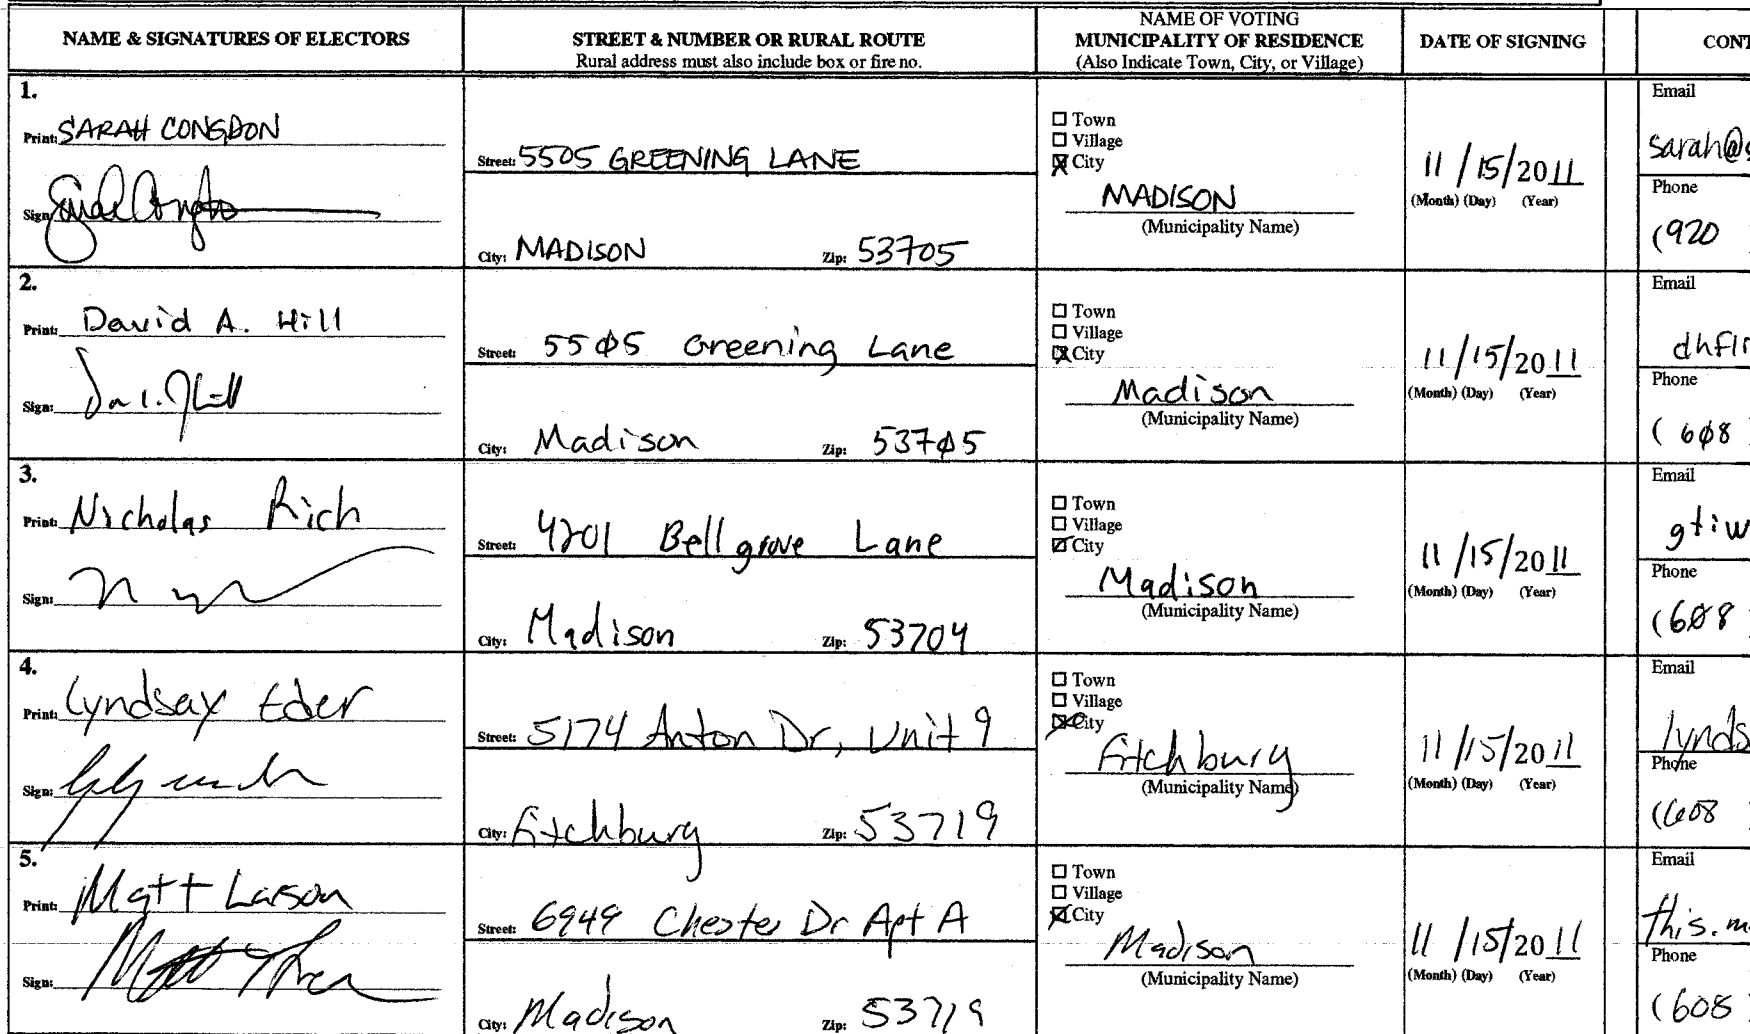 NAME & SIGNATURES OF ELECTORS
STREET & NUMBER OR RURAL ROUTE
Rural address must also include box or fire no.
NAME OF VOTING
MUNICIPALITY OF RESIDENCE
(Also Indicate Town, City, or Village)
DATE OF SIGNING
CONT
1.
Print: SARAH CONGDON
Sign:
Street: 5505 GREENING LANE
City: MADISON Zip: 53705
Town
Village
City
MADISON
(Municipality Name)
11/15/2011
(Month) (Day) (Year)
Email
sarah@s
Phone
(920
2.
Print: David A. Hill
Sign:
Street: 5505 Greening Lane
City: Madison Zip: 53705
Town
Village
City
Madison
(Municipality Name)
11/15/2011
(Month) (Day) (Year)
Email
dhfir
Phone
(608
3.
Print: Nicholas Rich
Sign:
Street: 4201 Bellgrove Lane
City: Madison Zip: 53704
Town
Village
City
Madison
(Municipality Name)
11/15/2011
(Month) (Day) (Year)
Email
gtiw
Phone
(608
4.
Print: Lyndsay Eder
Sign:
Street: 5174 Anton Dr, Unit 9
City: Fitchburg Zip: 53719
Town
Village
City
Fitchburg
(Municipality Name)
11/15/2011
(Month) (Day) (Year)
Email
lynds
Phone
(608
5.
Print: Matt Larson
Sign:
Street: 6949 Chester Dr Apt A
City: Madison Zip: 53719
Town
Village
City
Madison
(Municipality Name)
11/15/2011
(Month) (Day) (Year)
Email
this.m
Phone
(608